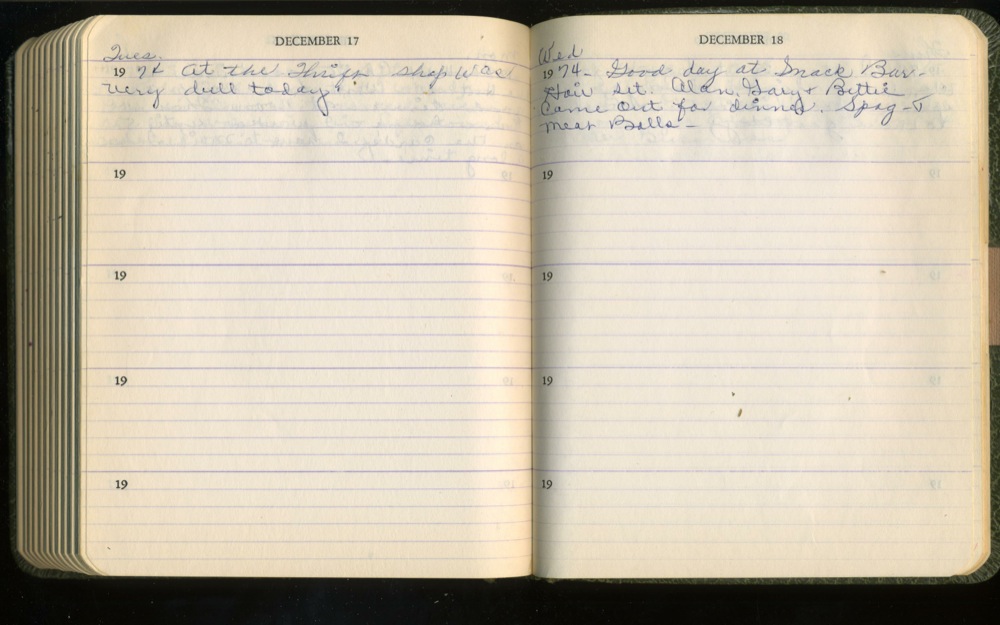 DECEMBER 17
Tues.
1974 At the Thrift shop was
very dull today.
19
19
19
19
DECEMBER 18
Wed
1974- Good day at Snack Bar-
Hair set. Alan, Gary & Bettie
Came Out for dinner. Spag- &
meat Balls-
19
19
19
19